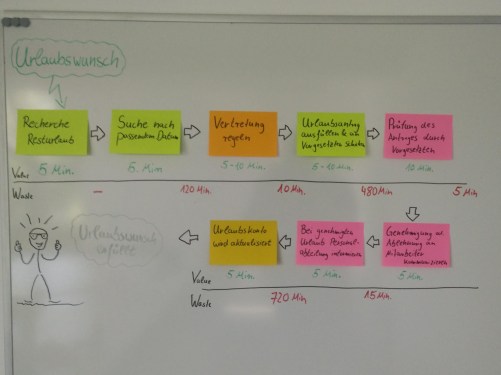 Urlaubswunsch
Recherche
Resturlaub
Suche nach
passendem Datum
Vertretung
regeln
Urlaubsantrag
ausfüllen & an
Vorgesetzten
Prüfung des
Antrages durch
Vorgesetzten
Value
5 Min.
5 Min
5-10 Min.
5-10 Min.
10 Min.
Waste
-
120 Min.
10 Min.
480 Min.
5 Min.
Urlaubswunsch
erfüllt
Urlaubskonto
wird aktualisiert
Bei genehmigten
Urlaub Personal-
abteilung informieren
Genehmigung od.
Ablehnung an
Mitarbeiter
kommunizieren
Value
5 Min.
5 Min.
5 Min.
Waste
720 Min.
15 Min.